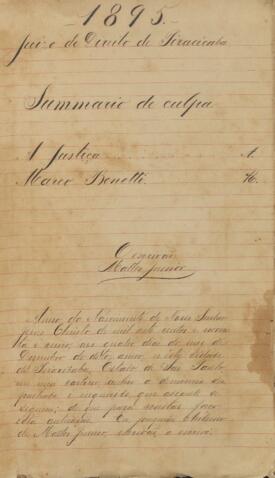 1895.
Juizo de Direito de Piracicaba
Summario de culpa
A Justiça A.
Marco Benotti R.
O escrivão
Mattos Junior
Anno do Nascimento de Nosso Senhor
Jesus Christo de mil oito centos e noven
ta e cinco, aos quatro dias do mez de
Dezembro de dito anno, n'esta cidade
de Piracicaba, Estado de São Paulo,
em meu cartorio autuo a denuncia
e inquerito que adiante se
seguem; do que para constar faço
esta autuação. Eu
de Mattos Junior, escrivão o escrevi.